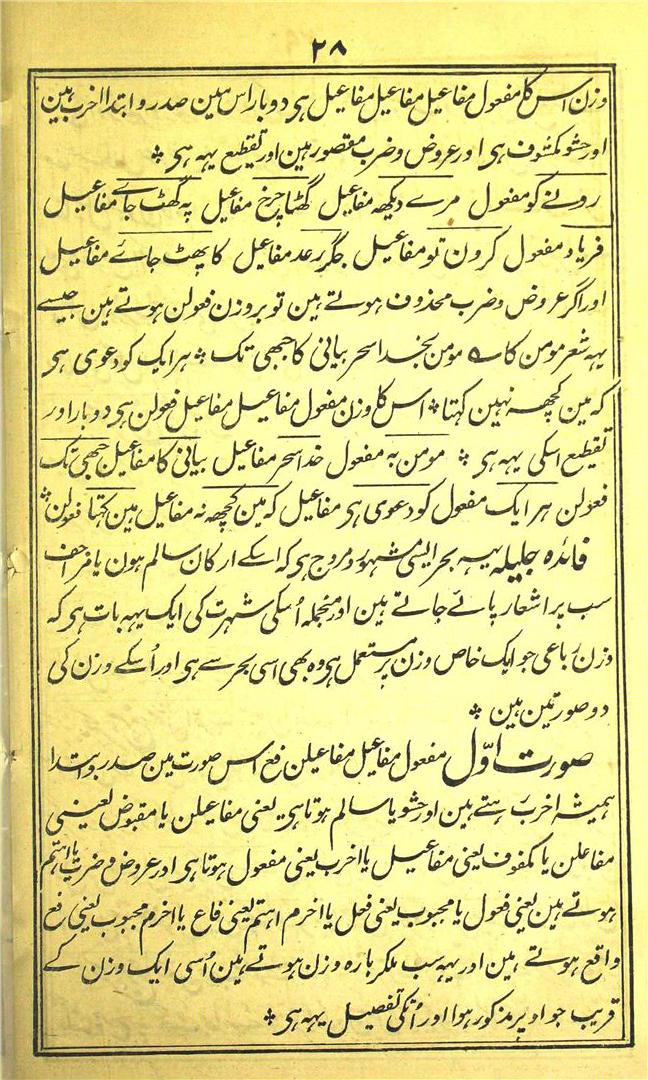 ۲۸
وزن اس کا مفعول مفاعیل مفاعیل مفاعیل ہی دوبار اس مین صدر و ابتدا اخرب ہین
اور حشو مکفوف ہی اور عروض و ضرب مقصور ہین اور تقطیع یہہ ہی ٭
رونے کو مفعول مرے دیکھہ مفاعیل گھٹا چرخ مفاعیل پہ گھٹ جاے مفاعیل
فریاد مفعول کرون تو مفاعیل جگر رعد مفاعیل کا پھٹ جائے مفاعیل
اور اگر عروض و ضرب محذوف ہوتے ہین تو بروزن فعولن ہوتے ہین جیسے
یہہ شعر مومن کا ے مومن بخدا سحر بیانی کا جبھی تک ٭ ہر ایک کو دعوی ہی
کہ مین کچھہ نہین کہتا ٭ اس کا وزن مفعول مفاعیل مفاعیل فعولن ہی دوبار اور
تقطیع اسکی یہہ ہی ٭ مومن بہ مفعول خدا سحر مفاعیل بیانی کا مفاعیل جبھی تک
فعولن ہر ایک مفعول کو دعوی ہی مفاعیل کہ مین کچھہ نہ مفاعیل ہین کہتا فعولن ٭
فائدہ جلیلہ یہہ بحر ایسی مشہور و مروج ہی کہ اسکے ارکان سالم ہون یا مزاحف
سب پر اشعار پائے جاتے ہین اور منجملہ اُسکی شہرت کی ایک یہہ بات ہی کہ
وزن رُباعی جو ایک خاص وزن پر مستعمل ہی وہ بھی اسی بحر سے ہی اور اُسکے وزن کی
دو صورتین ہین ٭
صورت اوّل مفعول مفاعیل مفاعیلن فع اس صورت مین صدر و ابتدا
ہمیشہ اخرب رہتے ہین اور حشو یا سالم ہوتا ہی یعنی مفاعیلن یا مقبوض یعنی
مفاعلن یا مکفوف یعنی مفاعیل یا اخرب یعنی مفعول ہوتا ہی اور عروض و ضرب یا اہتم
ہوتے ہین یعنی فعول یا مجبوب یعنی فعل یا اخرم اہتم یعنی فاع یا اخرم مجبوب یعنی فع
واقع ہوتے ہین اور یہہ سب ملکر بارہ وزن ہوتے ہین اُسی ایک وزن کے
قریب جو اوپر مذکور ہوا اور اُنکی تفصیل یہہ ہی ٭